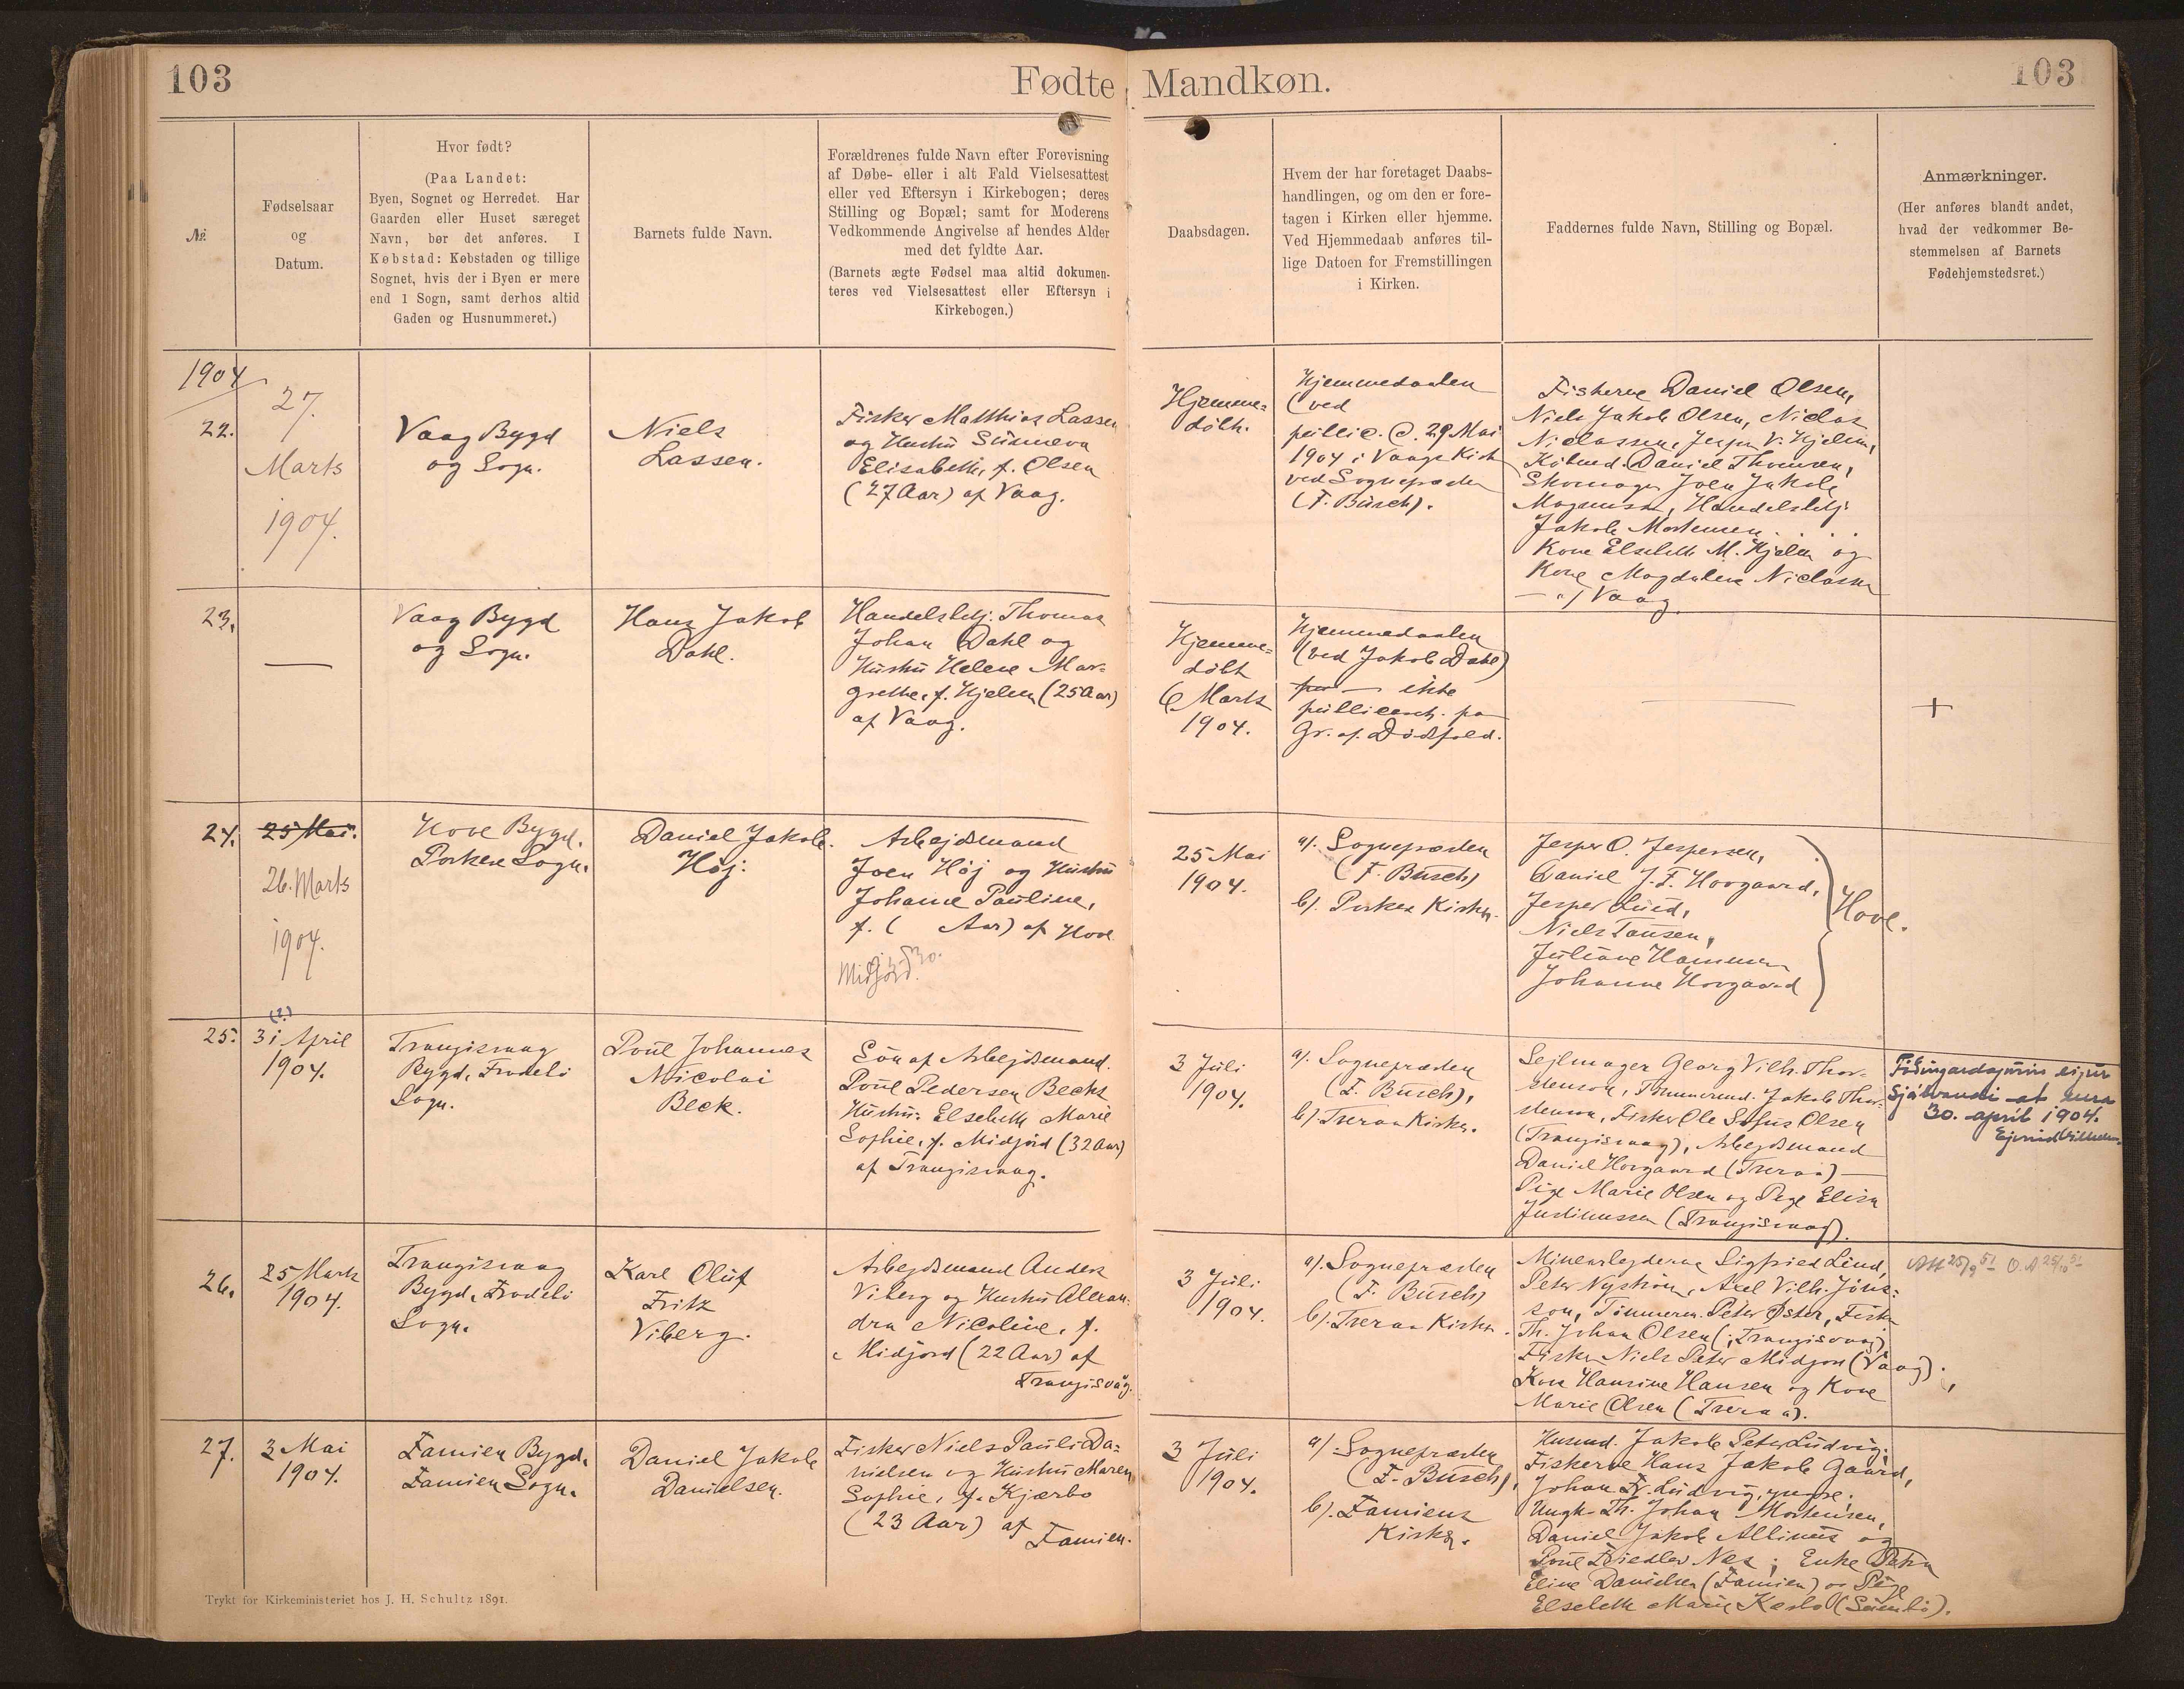 103
Fødte Mandkøn.
103
№.
Fødselsaar
og
Datum.
Hvor født?
(Paa Landet:
Byen, Sognet og Herredet. Har
Gaarden eller Huset særeget
Navn, bør det anføres. I
Købstad: Købstaden og tillige
Sognet, hvis der i Byen er mere
end 1 Sogn, samt derhos altid
Gaden og Husnummeret.)
Barnets fulde Navn.
Forældrenes fulde Navn efter Forevisning
af Døbe- eller i alt Fald Vielsesattest
eller ved Eftersyn i Kirkebogen; deres
Stilling og Bopæl; samt for Moderens
Vedkommende Angivelse af hendes Alder
med det fyldte Aar.
(Barnets ægte Fødsel maa altid dokumen-
teres ved Vielsesattest eller Eftersyn i
Kirkebogen.)
Daabsdagen.
Hvem der har foretaget Daabs-
handlingen, og om den er fore-
tagen i Kirken eller hjemme.
Ved Hjemmedaab anføres til-
lige Datoen for Fremstillingen
i Kirken.
Faddernes fulde Navn, Stilling og Bopæl.
Anmærkninger.
(Her anføres blandt andet,
hvad der vedkommer Be-
stemmelsen af Barnets
Fødehjemstedsret.)
1904
22.
27.
Marts
1904.
Vaag Bygd
og Sogn.
Niels
Lassen.
Fisker Matthias Lassen
og Hustru Sunneva
Elisabeth, f. Olsen
(27 Aar) af Vaag.
Hjemme-
døbt.
Hjemmedaaben
(ved
public. d. 29 Mai
1904 i Vaags Kirk
ved Sognepræsten
(F. Busch).
Fiskerne Daniel Olsen,
Niels Jakob Olsen, Niclas
Niclassen, Jesper V. Hjelm,
Købmd. Daniel Thomsen,
Skomager Joen Jakob
Magnussen, Handelsbetj.
Jakob Mortensen
Kone Elsebeth M. Hjelm og
Kone Magdalene Niclassen
— af Vaag.
23.
—
Vaag Bygd
og Sogn.
Hans Jakob
Dahl.
Handelsbetj. Thomas
Johan Dahl og
Hustru Helene Mar-
grethe, f. Hjelm (25 Aar)
af Vaag.
Hjemme-
døbt
6 Marts
1904.
Hjemmedaaben
(ved Jakob Dahl)
— ikke
publiceret. paa
Gr. af Dødsfald.
—
+
24.
25 Mai.
26. Marts
1904.
Hove Bygd.
Porkere Sogn.
Daniel Jakob
Høj.
Arbejdsmand
Joen Høj og Hustru
Johanne Pauline,
f. ( Aar) af Hove
Midjord. 30.
25 Mai
1904.
a). Sognepræsten
(F. Busch)
b). Porkes Kirke.
Jesper O. Jespersen,
Daniel J. F. Hovgaard,
Jesper Lund,
Niels Tausen,
Juliane Hammer
Johanne Hovgaard
Hove.
25.
(?)
31 April
1904.
Trangisvaag
Bygd, Frodebø
Sogn.
Poul Johannes
Nicolai
Beck.
Søn af Arbejdsmand.
Poul Pedersen Becks
Hustru: Elsebeth Marie
Sophie, f. Midjord (32 Aar)
af Trangisvaag.
3 Juli
1904.
a). Sognepræsten
(F. Busch),
b). Tveraa Kirke.
Sejlmager Georg Vilh. Thor-
stensson, Tømmermd. Jakob Thor-
stensson, Fisker Ole Sofus Olsen
(Trangisvaag), Arbejdsmand
Daniel Hovgaard (Tveraa) —
Pige Marie Olsen og Pige Elisa
Justinussen (Trangisvaag).
Føðingardagurin eigur
sjálvandi at vera
30. apríl 1904.
Ejvind Vilhelm.
26.
25 Marts
1904.
Trangisvaag
Bygd, Frodebø
Sogn.
Karl Oluf
Fritz
Viberg.
Arbejdsmand Anders
Viberg og Hustru Alexan-
dra Nicoline, f.
Midjord (22 Aar) af
Trangisvåg.
3 Juli
1904.
a). Sognepræsten
(F. Busch)
b). Tveraa Kirke.
Minearbejderne Sigfried Lind,
Peter Nyström, Axel Vilh. Jöns-
son, Tömmerm. Peter Øster, Fisker
Th. Johan Olsen (Trangisvaag)
Fisker Niels Peter Midjord (Vaag),
Kone Hansine Hansen og Kone
Marie Olsen (Tveraa).
Att 25/9 51 O.A 25/10 51
27.
3 Mai
1904.
Famien Bygd,
Famien Sogn.
Daniel Jakob
Danielsen.
Fisker Niels Pauli Da-
nielsen og Hustru Maren
Sophie, f. Kjærbo
(23 Aar) af
Famien.
3 Juli
1904.
a). Sognepræsten
(F. Busch),
b). Famiens
Kirke.
Husmd. Jakob Peter Ludvig,
Fiskerne Hans Jakob Gaard,
Johan Fr. Ludvig, yngre,
Ungk. Th. Johan Mortensen,
Daniel Jakob Allinus og
Poul Fiedler Næs; Enke Petra
Eline Danielsen (Famien) og Pige
Elsebeth Marie Kærbo (Sumbø).
Trykt for Kirkeministeriet hos J. H. Schultz 1891.